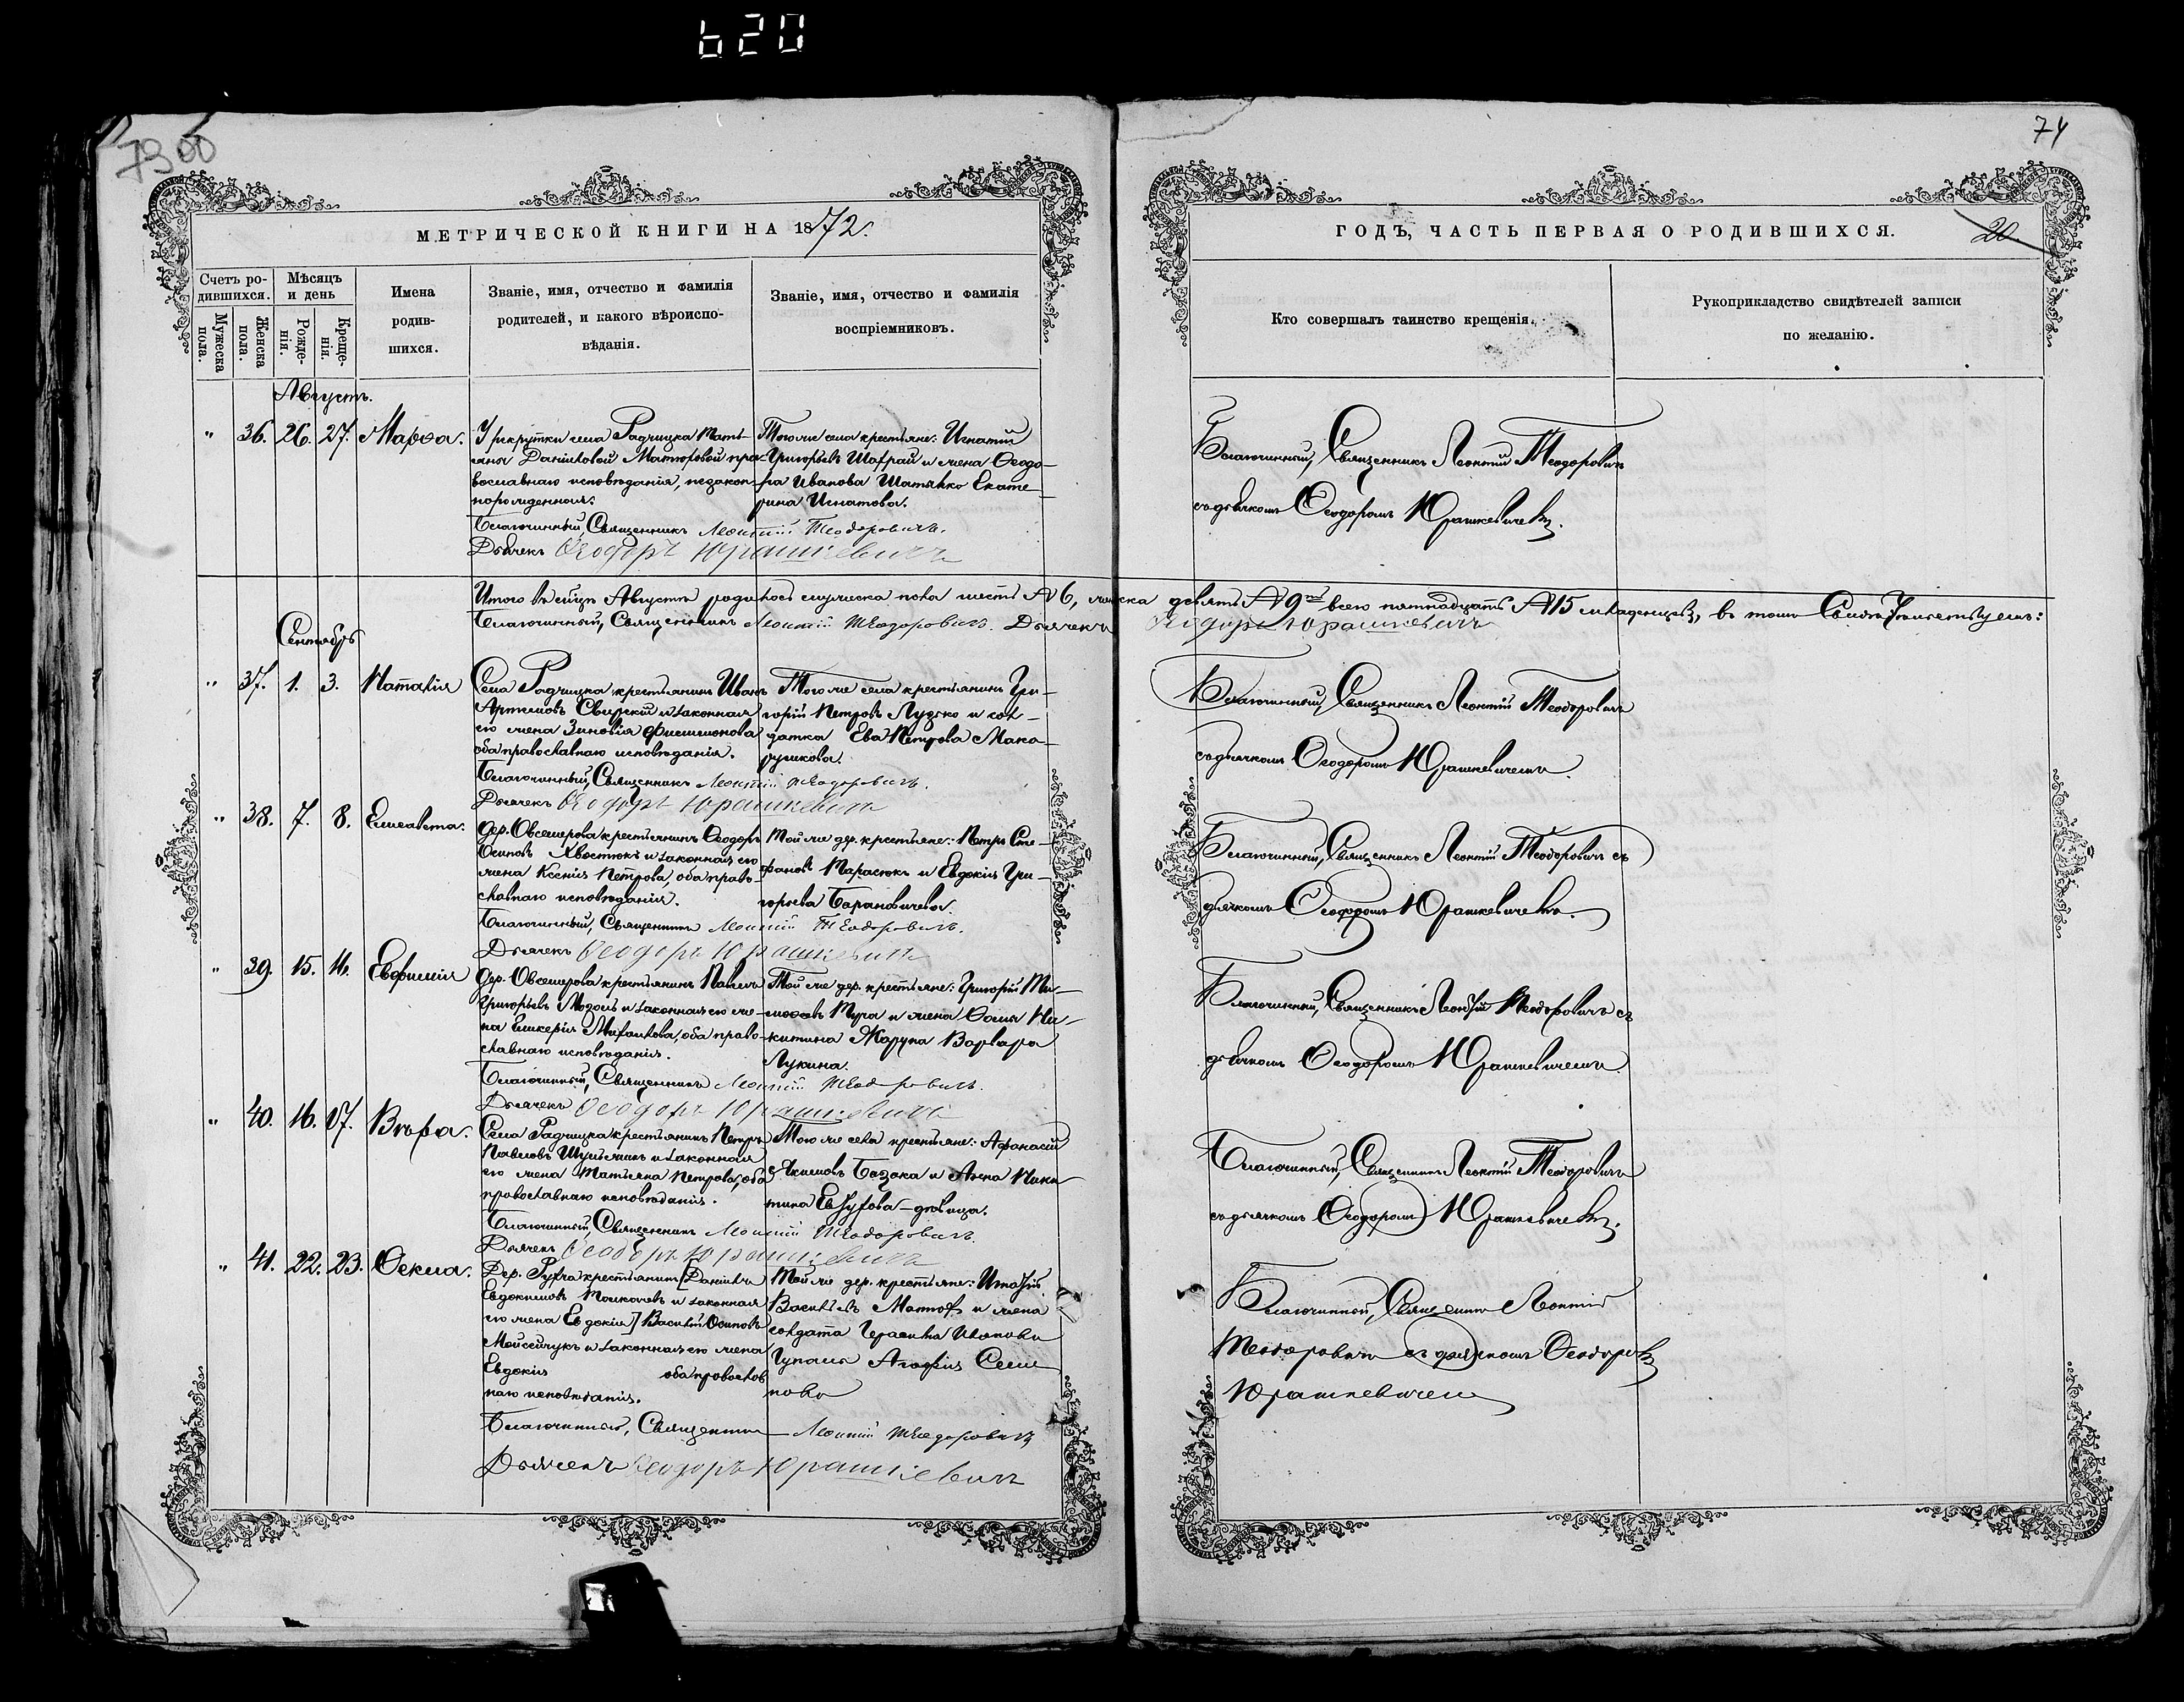 620
7300
74
МЕТРИЧЕСКОЙ КНИГИ НА 1872
ГОДЪ, ЧАСТЬ ПЕРВАЯ О РОДИВШИХСЯ.
20
Счетъ ро-
дившихся.
Мужеска
пола.
Женска
пола.
Мѣсяцъ
и день
Рожде-
нія.
Креще-
нія.
Имена
родив-
шихся.
Званіе, имя, отчество и фамилія
родителей, и какого вѣроиспо-
вѣданія.
Званіе, имя, отчество и фамилія
воспріемниковъ.
Кто совершалъ таинство крещенія.
Рукоприкладство свидѣтелей записи
по желанію.
Августъ.
" 36. 26. 27. Марѳа.
села Радчицка
православнаго исповѣданія, незакон-
норожденная.
Тогоже села крестьяне: Игнатій
Григорьевъ Шафран и жена Ѳеодо-
ра Иванова Шатянко Екате-
рина Игнатова.
Благочинный, Священникъ Леонтій Теодоровичъ.
Дьячекъ Ѳеодоръ Юрашкевичъ
Благочинный, Священникъ Леонтій Теодоровичъ
съ дьячкомъ Ѳеодоромъ Юрашкевичемъ.
Итого въ мѣсяцѣ Августѣ родилось мужеска пола шесть 6, женска девять 9 всего пятнадцать 15 младенцевъ, въ томъ Свидѣтельствуемъ:
Благочинный, Священникъ Леонтій Теодоровичъ. Дьячекъ Ѳеодоръ Юрашкевичъ
Сентябрь
" 37. 1. 3. Наталія
Села Радчицка крестьянинъ Иванъ
Артемовъ Свирскій и законная
его жена Зиновія Филимонова
оба православнаго исповѣданія.
Тогоже села крестьянинъ Гри-
горій Петровъ Луцко и сол-
датка Ева Петрова Мака-
рушкова.
Благочинный, Священникъ Леонтій Теодоровичъ.
Дьячекъ Ѳеодоръ Юрашкевичъ
Благочинный, Священникъ Леонтій Теодоровичъ
съ дьячкомъ Ѳеодоромъ Юрашкевичемъ.
" 38. 7. 8. Елисавета.
Дер. Овсемирова крестьянинъ Ѳеодоръ
Осиповъ Хвостюкъ и законная его
жена Ксенія Петрова, оба право-
славнаго исповѣданія.
Той же дер. крестьяне: Петръ Сте-
фановъ Тарасюкъ и Евдокія Гри-
горьева Барановичева.
Благочинный, Священникъ Леонтій Теодоровичъ.
Дьячекъ Ѳеодоръ Юрашкевичъ
Благочинный, Священникъ Леонтій Теодоровичъ съ
дьячкомъ Ѳеодоромъ Юрашкевичемъ.
" 39. 15. 16. Евфимія
Дер. Овсемирова крестьянинъ Павелъ
Григорьевъ Мозоль и законная его же-
на Гликерія оба право-
славнаго исповѣданія.
Той же дер. крестьяне: Григорій Ти-
моѳеевъ Тура и жена Ѳомы Ни-
китина Жарука Варвара
Лукина.
Благочинный, Священникъ Леонтій Теодоровичъ.
Дьячекъ Ѳеодоръ Юрашкевичъ
Благочинный, Священникъ Леонтій Теодоровичъ съ
дьячкомъ Ѳеодоромъ Юрашкевичемъ.
" 40. 16. 17. Вѣра.
Села Радчицка крестьянинъ Петръ
Павловъ и законная
его жена Татьяна Петрова, оба
православнаго исповѣданія.
Того же села крестьяне: Афанасій
Якимовъ Бацака и Анна Ники-
тина дѣвица.
Благочинный, Священникъ Леонтій Теодоровичъ
Дьячекъ Ѳеодоръ Юрашкевичъ
Благочинный, Священникъ Леонтій Теодоровичъ
съ дьячкомъ Ѳеодоромъ Юрашкевичемъ.
" 41. 22. 23. Ѳекла.
Дер. Рубла крестьянинъ [Даніилъ
Евдокимовъ Толкачевъ и законная
его жена Евдокія] Василій Осиповъ
Мойсейчукъ и законная его жена
Евдокія оба православ-
наго исповѣданія.
Той же дер. крестьяне: Игнатій
Васильевъ и жена
солдата Герасима Иванова
Агафія Семе-
нова
Благочинный, Священникъ Леонтій Теодоровичъ
Дьячекъ Ѳеодоръ Юрашкевичъ
Благочинный, Священникъ Леонтій
Теодоровичъ съ дьячкомъ Ѳеодоромъ
Юрашкевичемъ